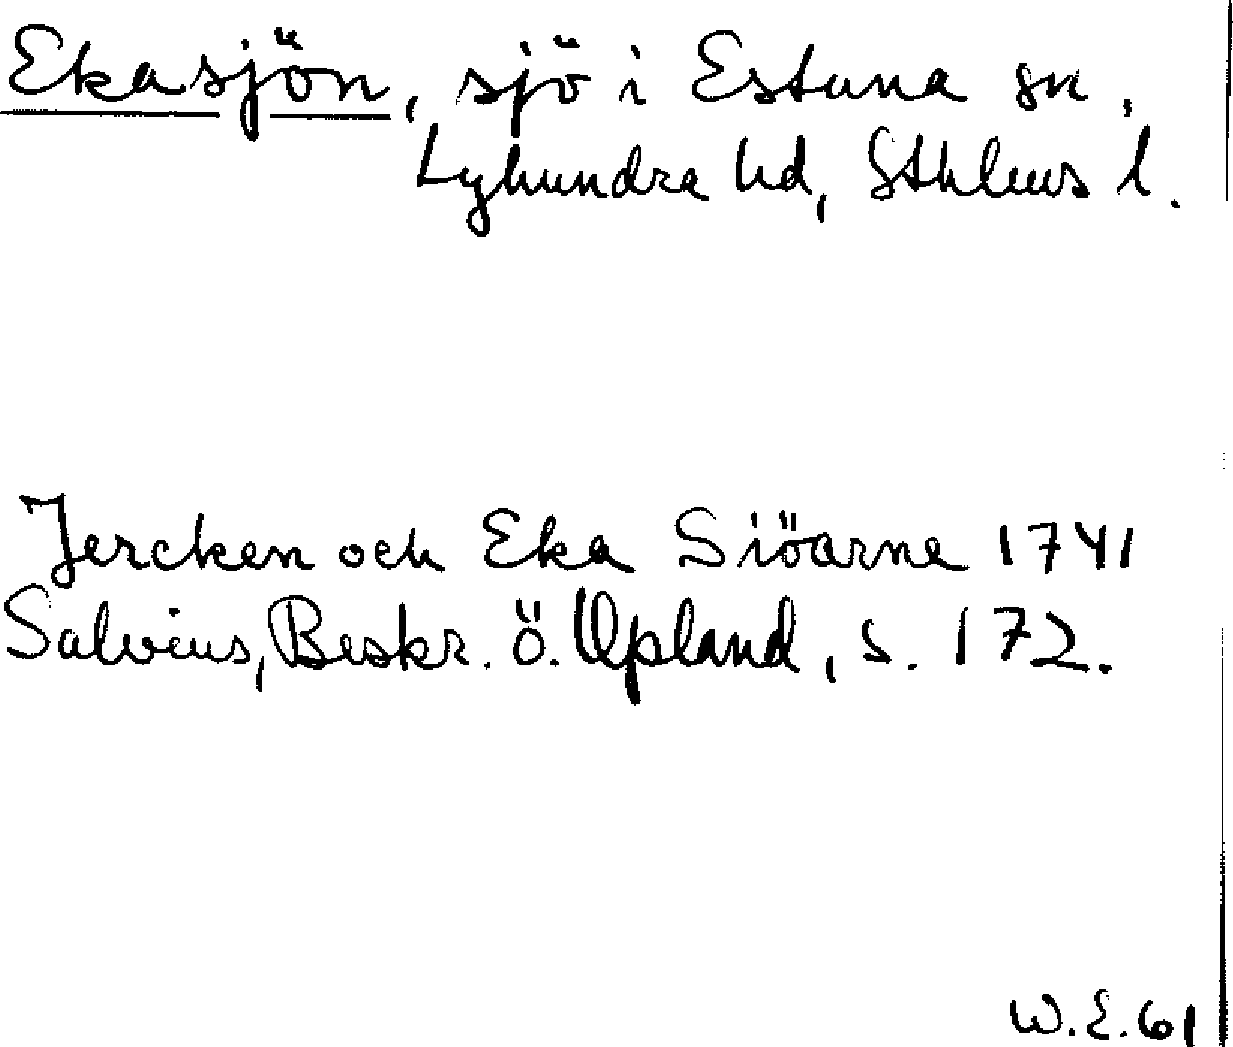 Ekasjön, sjö i Estuna sn,
Lyhundra hd, Sthlms l.
Jercken och Eka Siöarne 1741
Salvius, Beskr. ö. Upland, s. 172.
W.E.61